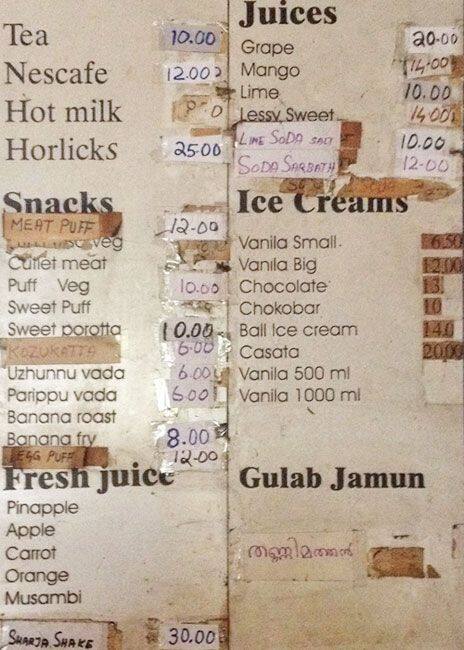 Tea 10.00
Nescafe 12.00
Hot milk
Horlicks 25.00
Snacks
MEAT PUFF 12.00
Veg
Cutlet meat
Puff Veg 10.00
Sweet Puff
Sweet porotta 10.00
KOZUKATTA 6.00
Uzhunnu vada 6.00
Parippu vada 6.00
Banana roast
Banana fry 8.00
EGG PUFF 12.00
Fresh juice
Pinapple
Apple
Carrot
Orange
Musambi
SHARJA SHAKE 30.00
Juices
Grape 20.00
Mango 14.00
Lime 10.00
Lessy Sweet 14.00
LIME SODA SALT 10.00
SODA SARBATH 12.00
SODA
Ice Creams
Vanila Small 6.50
Vanila Big 12.00
Chocolate 13
Chokobar 10
Ball Ice cream 14.0
Casata 20.00
Vanila 500 ml
Vanila 1000 ml
Gulab Jamun
തണ്ണിമത്തൻ